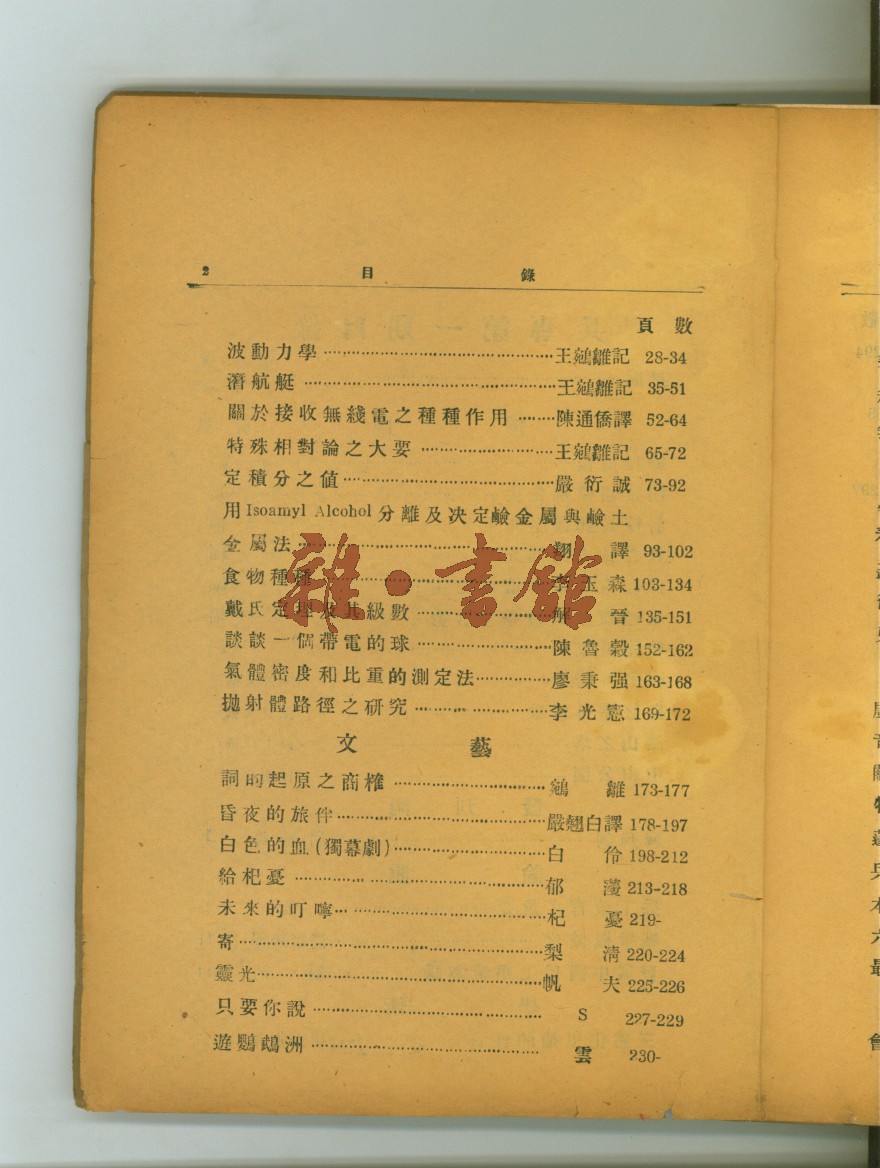 2 目錄
頁數
波動力學 王鵷雛記 28-34
潛航艇 王鵷雛記 35-51
關於接收無綫電之種種作用 陳通僑譯 52-64
特殊相對論之大要 王鵷雛記 65-72
定積分之値 嚴衍誠 73-92
用Isoamyl Alcohol分離及决定鹼金屬與鹼土
金屬法 翔譯 93-102
食物種種 李玉森 103-134
戴氏定理及其級數 解晉 135-151
談談一個帶電的球 陳魯穀 152-162
氣體密度和比重的測定法 廖秉强 163-168
拋射體路徑之研究 李光憲 169-172
文藝
詞的起原之商榷 鵷雛 173-177
昏夜的旅伴 嚴翹白譯 178-197
白色的血(獨幕劇) 白伶 198-212
給杞憂 郁 213-218
未來的叮嚀 杞憂 219-
寄 梨淸 220-224
靈光 帆夫 225-226
只要你說 S 227-229
遊鸚鵡洲 雲 230-
雜·書館